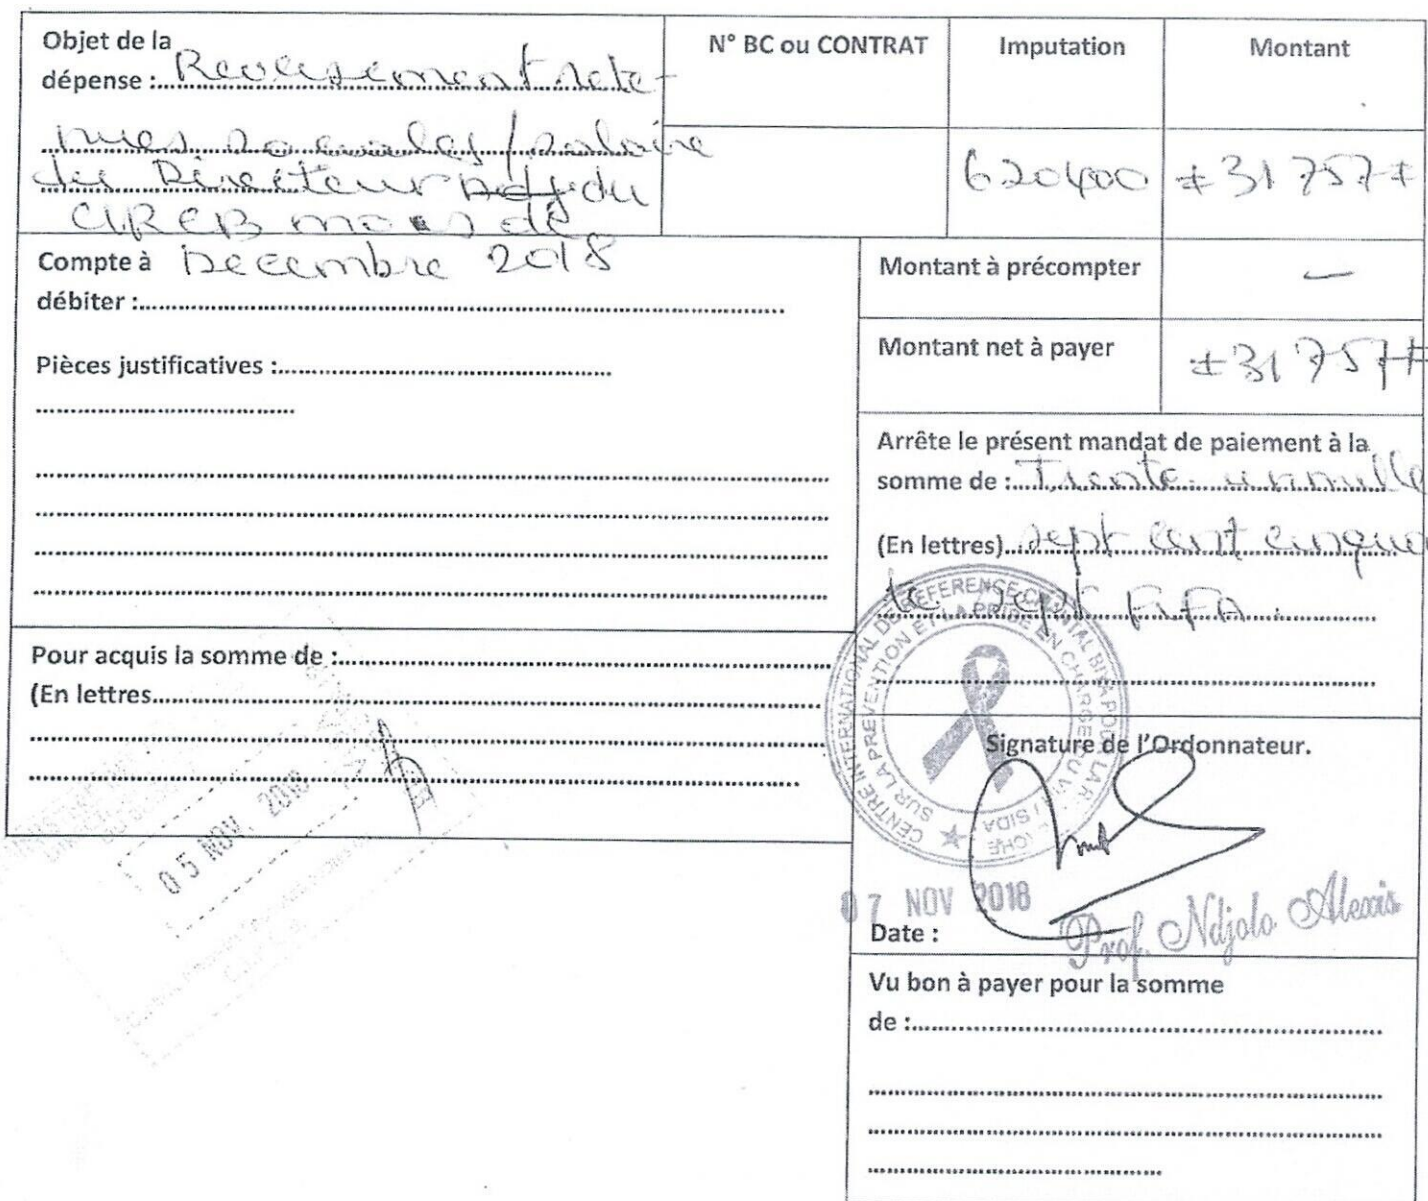 Objet de la
dépense : Reversement rete-
nues sociales / salaire
du Directeur Adj du
CIRCB mois de
Decembre 2018
N° BC ou CONTRAT
Imputation
Montant
620400
#31 757#
Compte à
débiter :
Pièces justificatives :
Montant à précompter
—
Montant net à payer
#31 757#
Arrête le présent mandat de paiement à la
somme de : Trente un mille
(En lettres) sept cent cinquan
te sept FCFA.
Pour acquis la somme de :
(En lettres
05 NOV. 2018
CENTRE INTERNATIONAL DE REFERENCE CHANTAL BIYA POUR LA RECHERCHE
SUR LA PREVENTION ET LA PRISE EN CHARGE DU VIH / SIDA
Signature de l'Ordonnateur.
07 NOV 2018
Date :
Prof. Ndjolo Alexis
Vu bon à payer pour la somme
de :